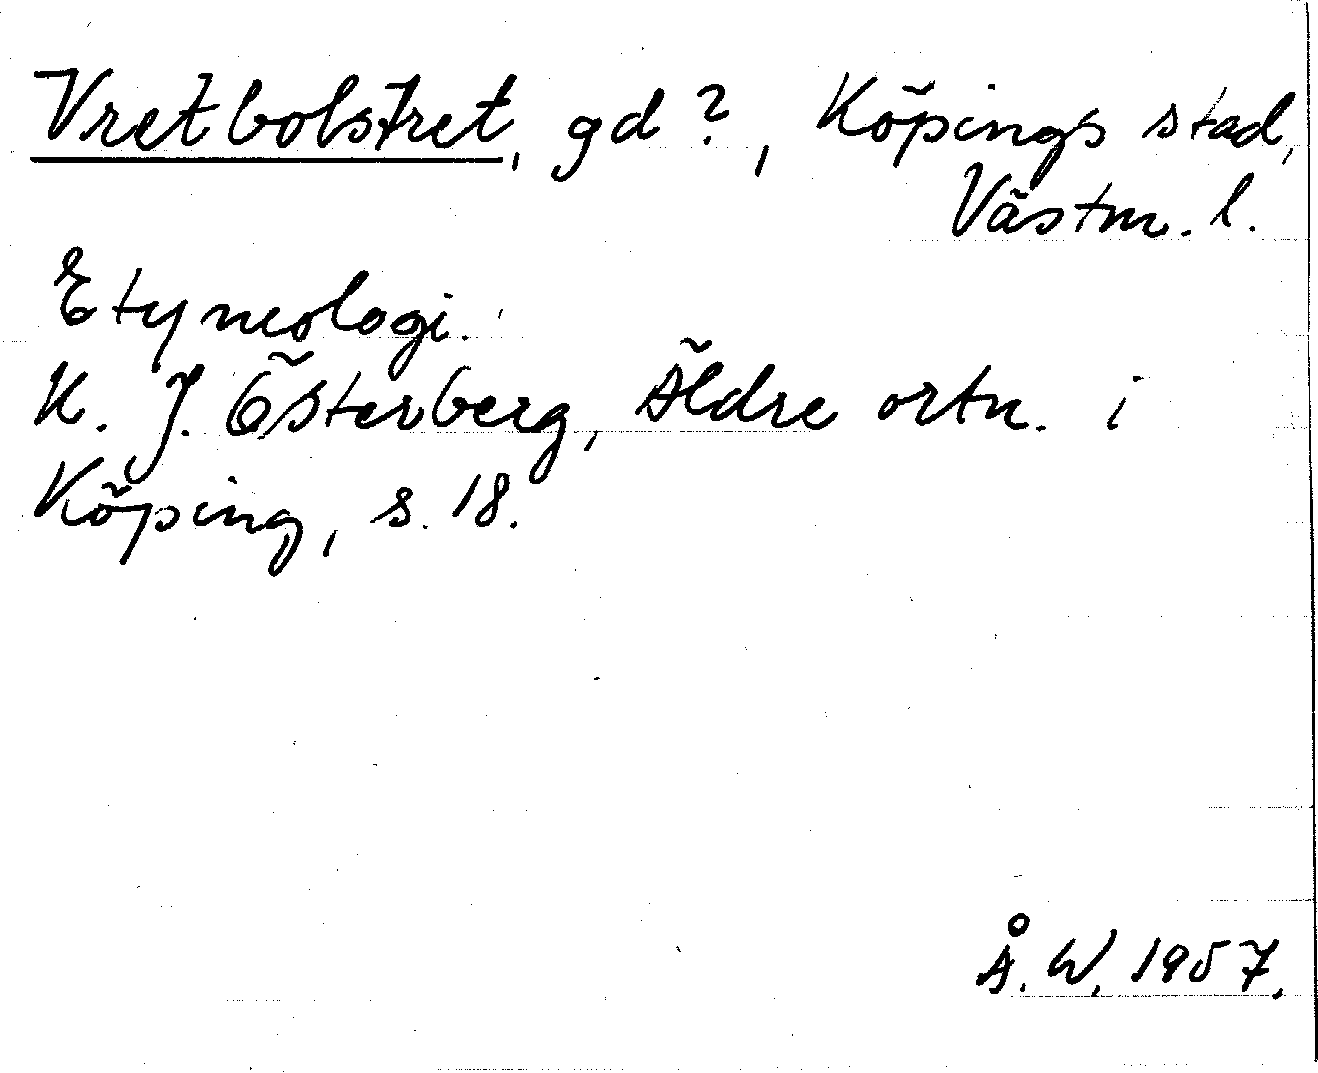 Vretbolstret, gd?, Köpings stad,
Västm. l.
Etymologi.
K. J. Österberg, Äldre ortn. i
Köping, s. 18.
Å. W. 1957.